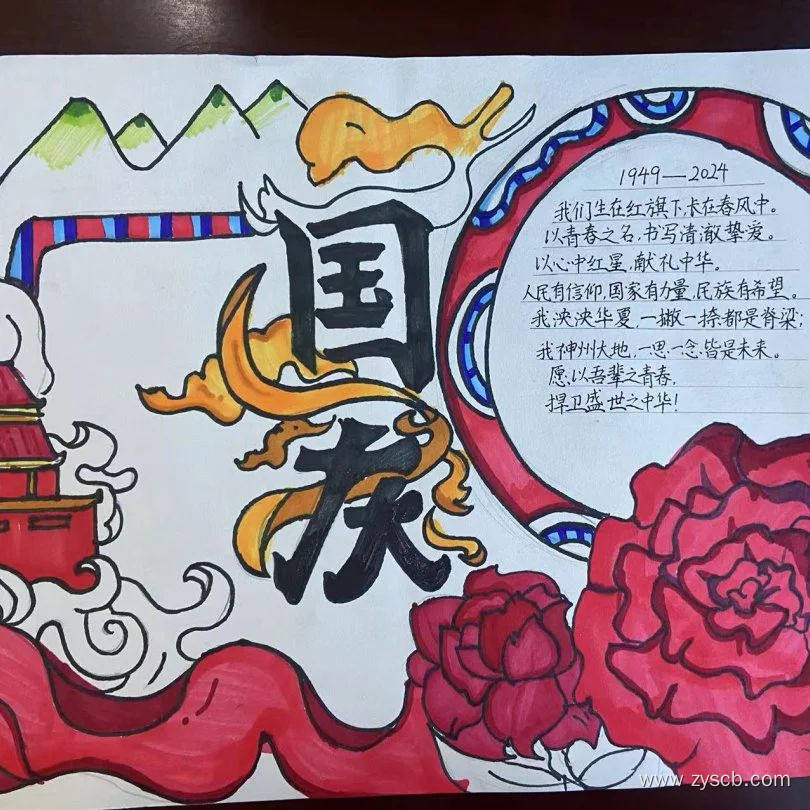 国庆
1949—2024
我们生在红旗下,长在春风中。
以青春之名,书写清澈挚爱。
以心中红星,献礼中华。
人民有信仰,国家有力量,民族有希望。
我泱泱华夏,一撇一捺都是脊梁;
我神州大地,一思一念皆是未来。
愿以吾辈之青春,
捍卫盛世之中华!
www.zyscb.com